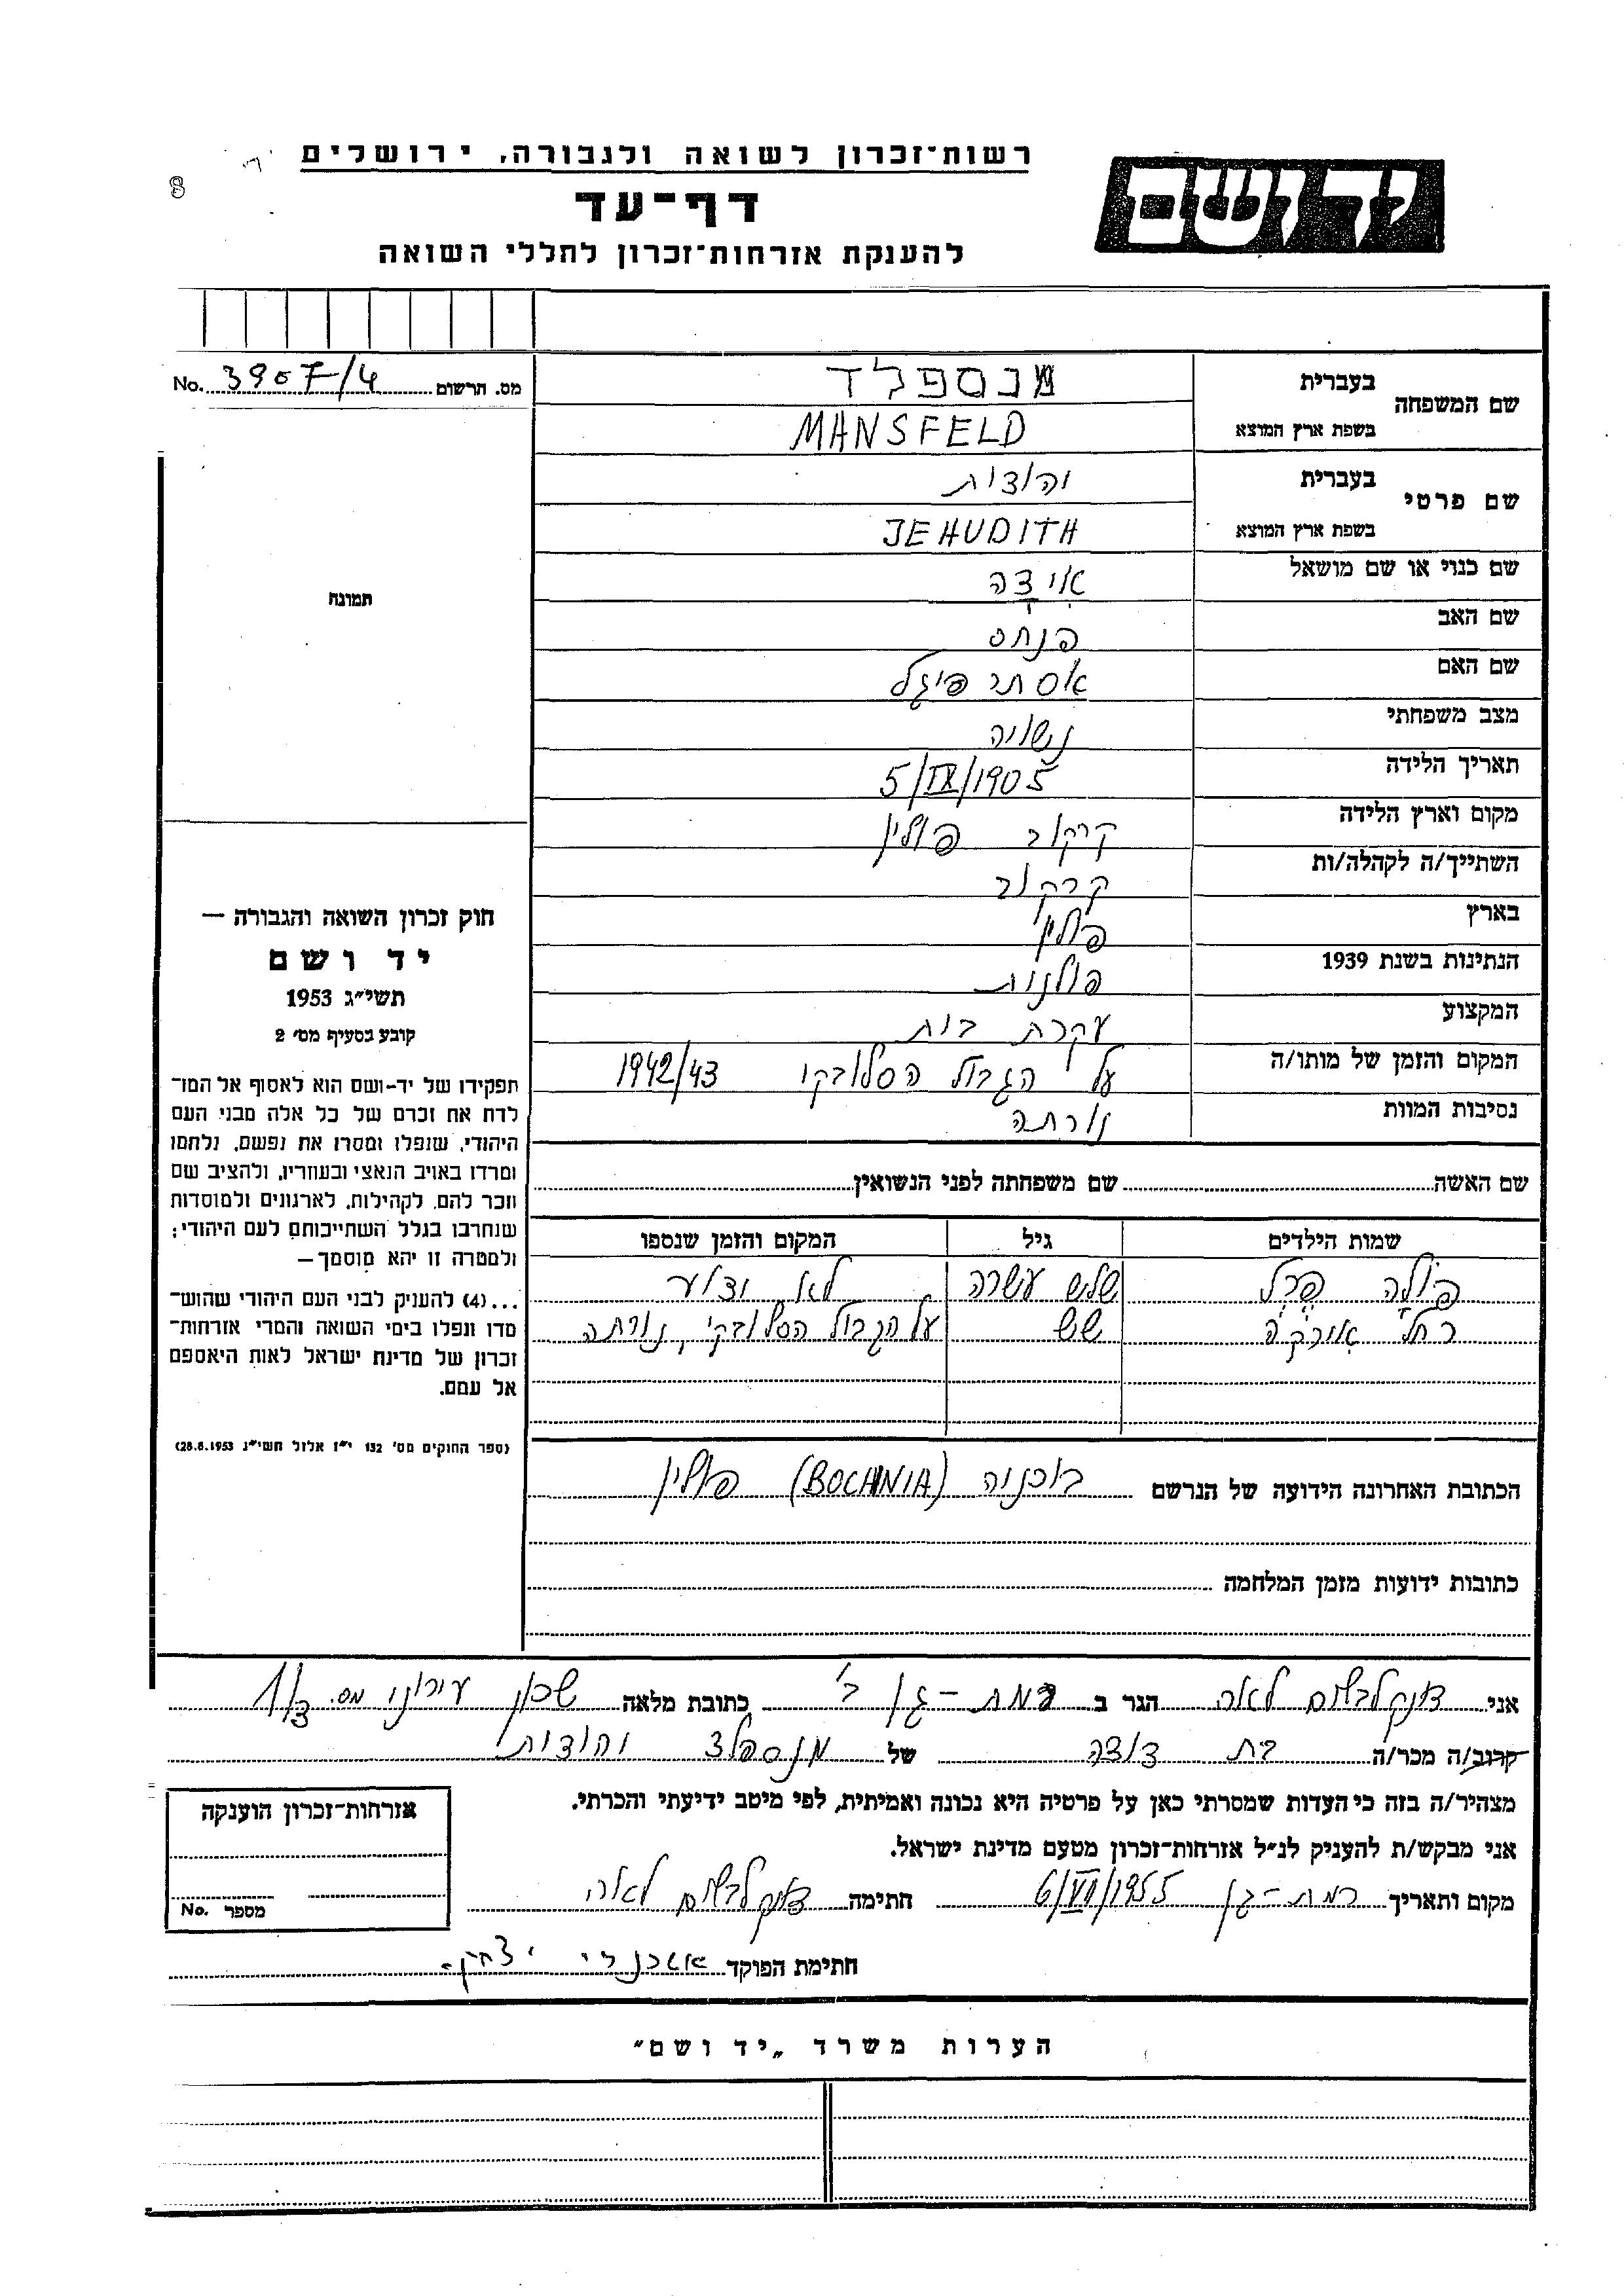 רשות־זכרון לשואה ולגבורה, ירושלים
יד ושם
8
דף־עד
להענקת אזרחות־זכרון לחללי השואה
מס. הרשום 3907/4 No.
שם המשפחה בעברית מנספלד
בשפת ארץ המוצא MANSFELD
שם פרטי בעברית יהודית
בשפת ארץ המוצא JEHUDITH
שם כנוי או שם מושאל אידה
שם האב פנחס
שם האם אסתר פיגל
מצב משפחתי נשואה
תאריך הלידה 5/IX/1905
מקום וארץ הלידה קרקוב פולין
השתייך/ה לקהלה/ות קרקוב
בארץ פולין
הנתינות בשנת 1939 פולנית
המקצוע עקרת בית
המקום והזמן של מותו/ה על הגבול הסלובקי 1942/43
נסיבות המוות נורתה
תמונה
חוק זכרון השואה והגבורה —
יד ושם
תשי״ג 1953
קובע בסעיף מס׳ 2
תפקידו של יד-ושם הוא לאסוף אל המו־
לדת את זכרם של כל אלה מבני העם
היהודי, שנפלו ומסרו את נפשם, נלחמו
ומרדו באויב הנאצי ובעוזריו, ולהציב שם
וזכר להם, לקהילות, לארגונים ולמוסדות
שנחרבו בגלל השתייכותם לעם היהודי;
ולמטרה זו יהא מוסמך—
...(4) להעניק לבני העם היהודי שהוש־
מדו ונפלו בימי השואה והמרי אזרחות־
זכרון של מדינת ישראל לאות היאספם
אל עמם.
(ספר החוקים מס׳ 132 י״ז אלול תשי״ג 28.8.1953)
שם האשה שם משפחתה לפני הנשואין
שמות הילדים גיל המקום והזמן שנספו
פולה פרל שלש עשרה לא ידוע
רחל שש על הגבול הסלובקי, נורתה
הכתובת האחרונה הידועה של הנרשם בוכניה (BOCHNIA) פולין
כתובות ידועות מזמן המלחמה
אני דנקלבלום לאה הגר ב רמת-גן ב׳ כתובת מלאה שכון עירוני מס. 1/ד
קרוב/ה מכר/ה בת דודה של מנספלד יהודית
מצהיר/ה בזה כי העדות שמסרתי כאן על פרטיה היא נכונה ואמיתית, לפי מיטב ידיעתי והכרתי.
אני מבקש/ת להעניק לנ״ל אזרחות־זכרון מטעם מדינת ישראל.
מקום ותאריך רמת-גן 6/VII/1955 חתימה דנקלבלום לאה
חתימת הפוקד אשכנזי יצחק
אזרחות־זכרון הוענקה
מספר No.
הערות משרד „יד ושם״